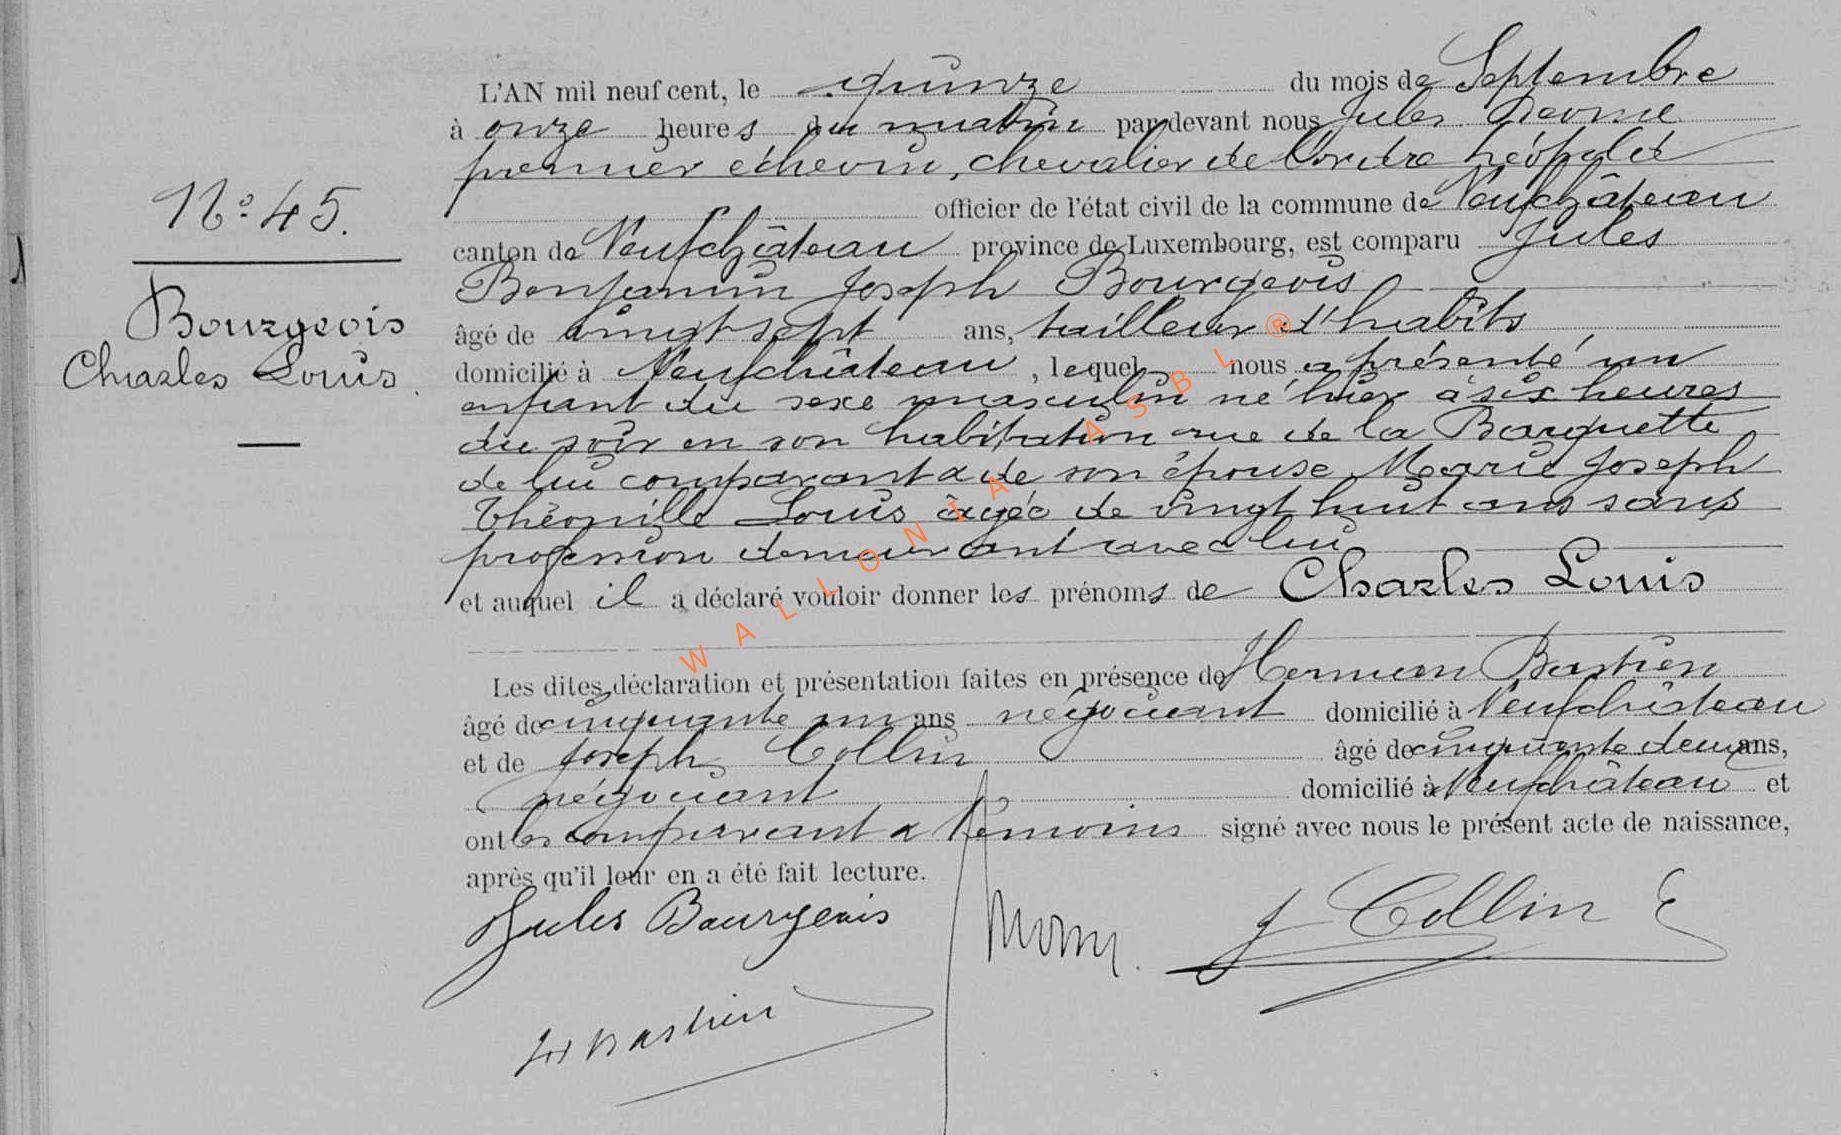 L'AN mil neuf cent, le quinze du mois de Septembre
à onze heures du matin par devant nous Jules
premier échevin, chevalier de l'ordre Léopold
N° 45.
officier de l'état civil de la commune de Neufchâteau
canton de Neufchâteau province de Luxembourg, est comparu Jules
Benjamin Joseph Bourgeois
Bourgeois
Charles Louis.
âgé de vingt sept ans, tailleur d'habits
domicilié à Neufchâteau, lequel nous a présenté un
enfant du sexe masculin né hier à six heures
du soir en son habitation rue de la Barquette
de lui comparant & de son épouse Marie Joseph
Théonille Louis âgée de vingt huit ans sans
profession demeurant avec lui
et auquel il a déclaré vouloir donner les prénoms de Charles Louis
Les dites déclaration et présentation faites en présence de Herman Bastien
âgé de cinquante un ans négociant domicilié à Neufchâteau
et de Joseph Collin âgé de cinquante deux ans,
négociant domicilié à Neufchâteau et
ont les comparant & témoins signé avec nous le présent acte de naissance,
après qu'il leur en a été fait lecture.
Jules Bourgeois
J Collin
H Bastien
WALLONIA ASBL ®